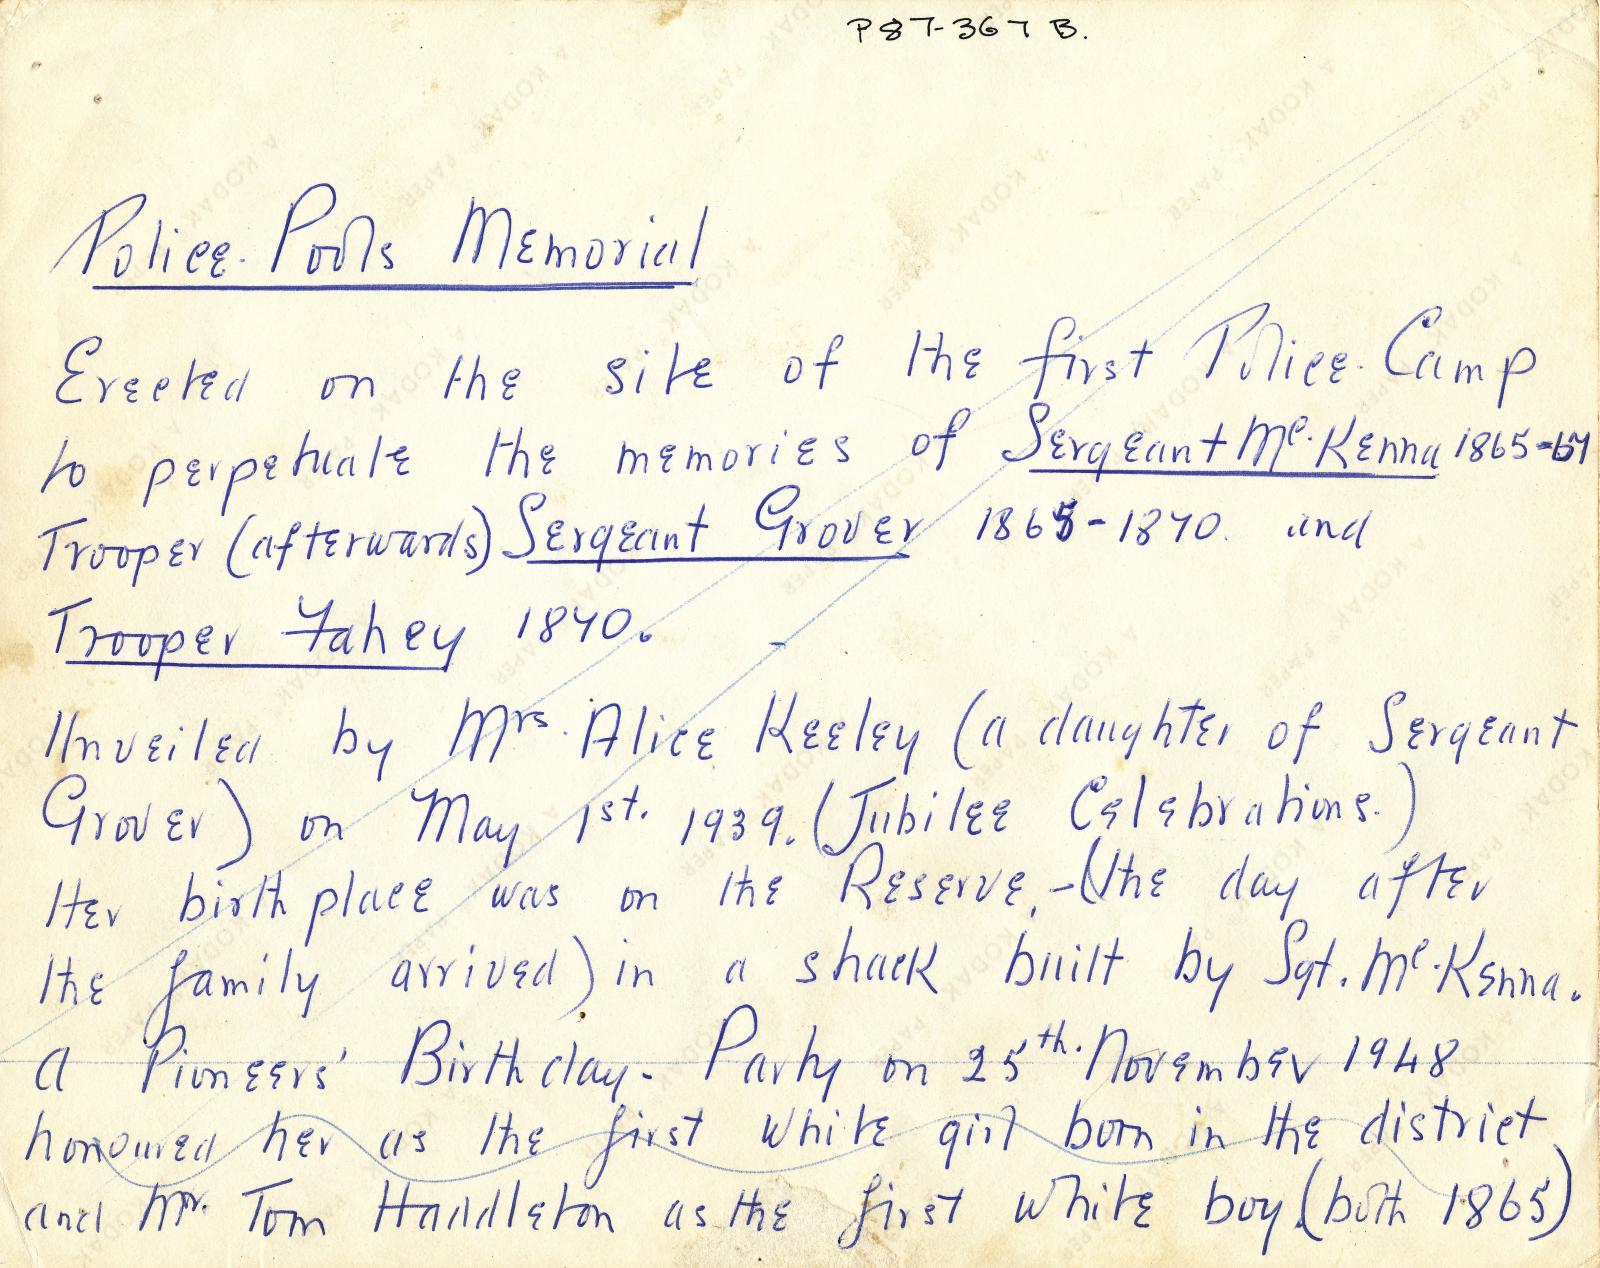 P87-367 B.
Police Pools Memorial
Erected on the site of the first Police Camp
to perpetuate the memories of Sergeant Mc.Kenna 1865-67
Trooper (afterwards) Sergeant Grover 1865-1870. and
Trooper Fahey 1870.
Unveiled by Mrs. Alice Keeley (a daughter of Sergeant
Grover) on May 1st. 1939. (Jubilee Celebrations.)
Her birth place was on the Reserve, - (the day after
the family arrived) in a shack built by Sgt. Mc.Kenna.
A Pioneers' Birthday - Party on 25th. November 1948
honoured her as the first white girl born in the district
and Mr. Tom Haddleton as the first white boy (both 1865)
A KODAK PAPER